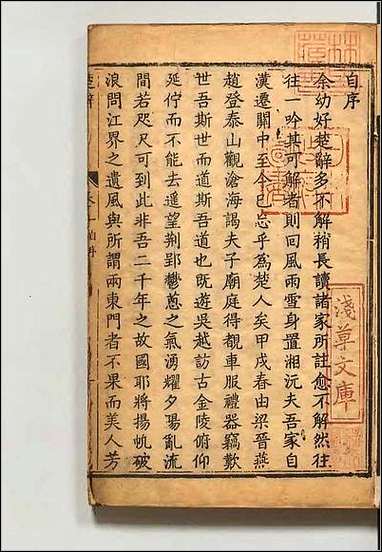 自序
余幼好楚辭多不解稍長讀諸家所註愈不解然往
往一吟其可解者則回風雨雪身置湘沅夫吾家自
漢遷關中至今已忘乎為楚人矣甲戌春由梁晉燕
趙登泰山觀滄海謁夫子廟庭得覩車服禮器竊歎
世吾斯世而道斯吾道也既遊吳越訪古金陵俯仰
延佇而不能去遙望荆郢鬱蔥之氣湧耀夕陽亂流
間若咫尺可到此非吾二千年之故國耶將揚帆破
浪問江界之遺風與所謂兩東門者不果而美人芳
淺草文庫